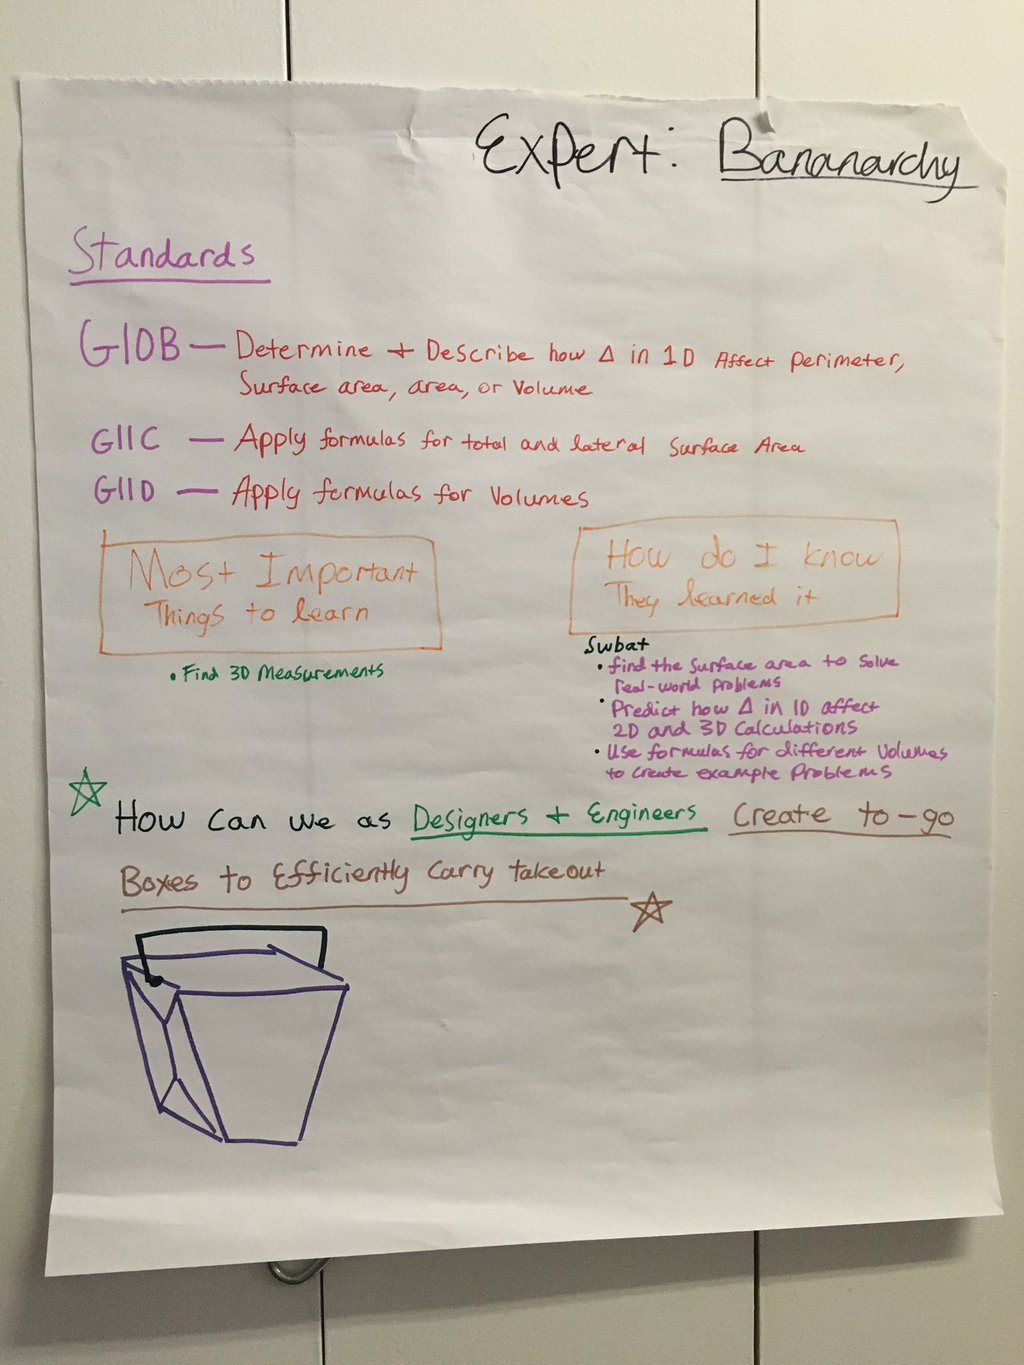 Expert: Bananarchy
Standards
G10B — Determine + Describe how Δ in 1D Affect perimeter,
Surface area, area, or Volume
G11C — Apply formulas for total and lateral Surface Area
G11D — Apply formulas for Volumes
Most Important
Things to learn
• Find 3D Measurements
How do I know
They learned it
Swbat
• find the surface area to solve
real-world problems
• Predict how Δ in 1D affect
2D and 3D Calculations
• Use formulas for different Volumes
to create example Problems
How can we as Designers + Engineers Create to-go
Boxes to Efficiently Carry takeout